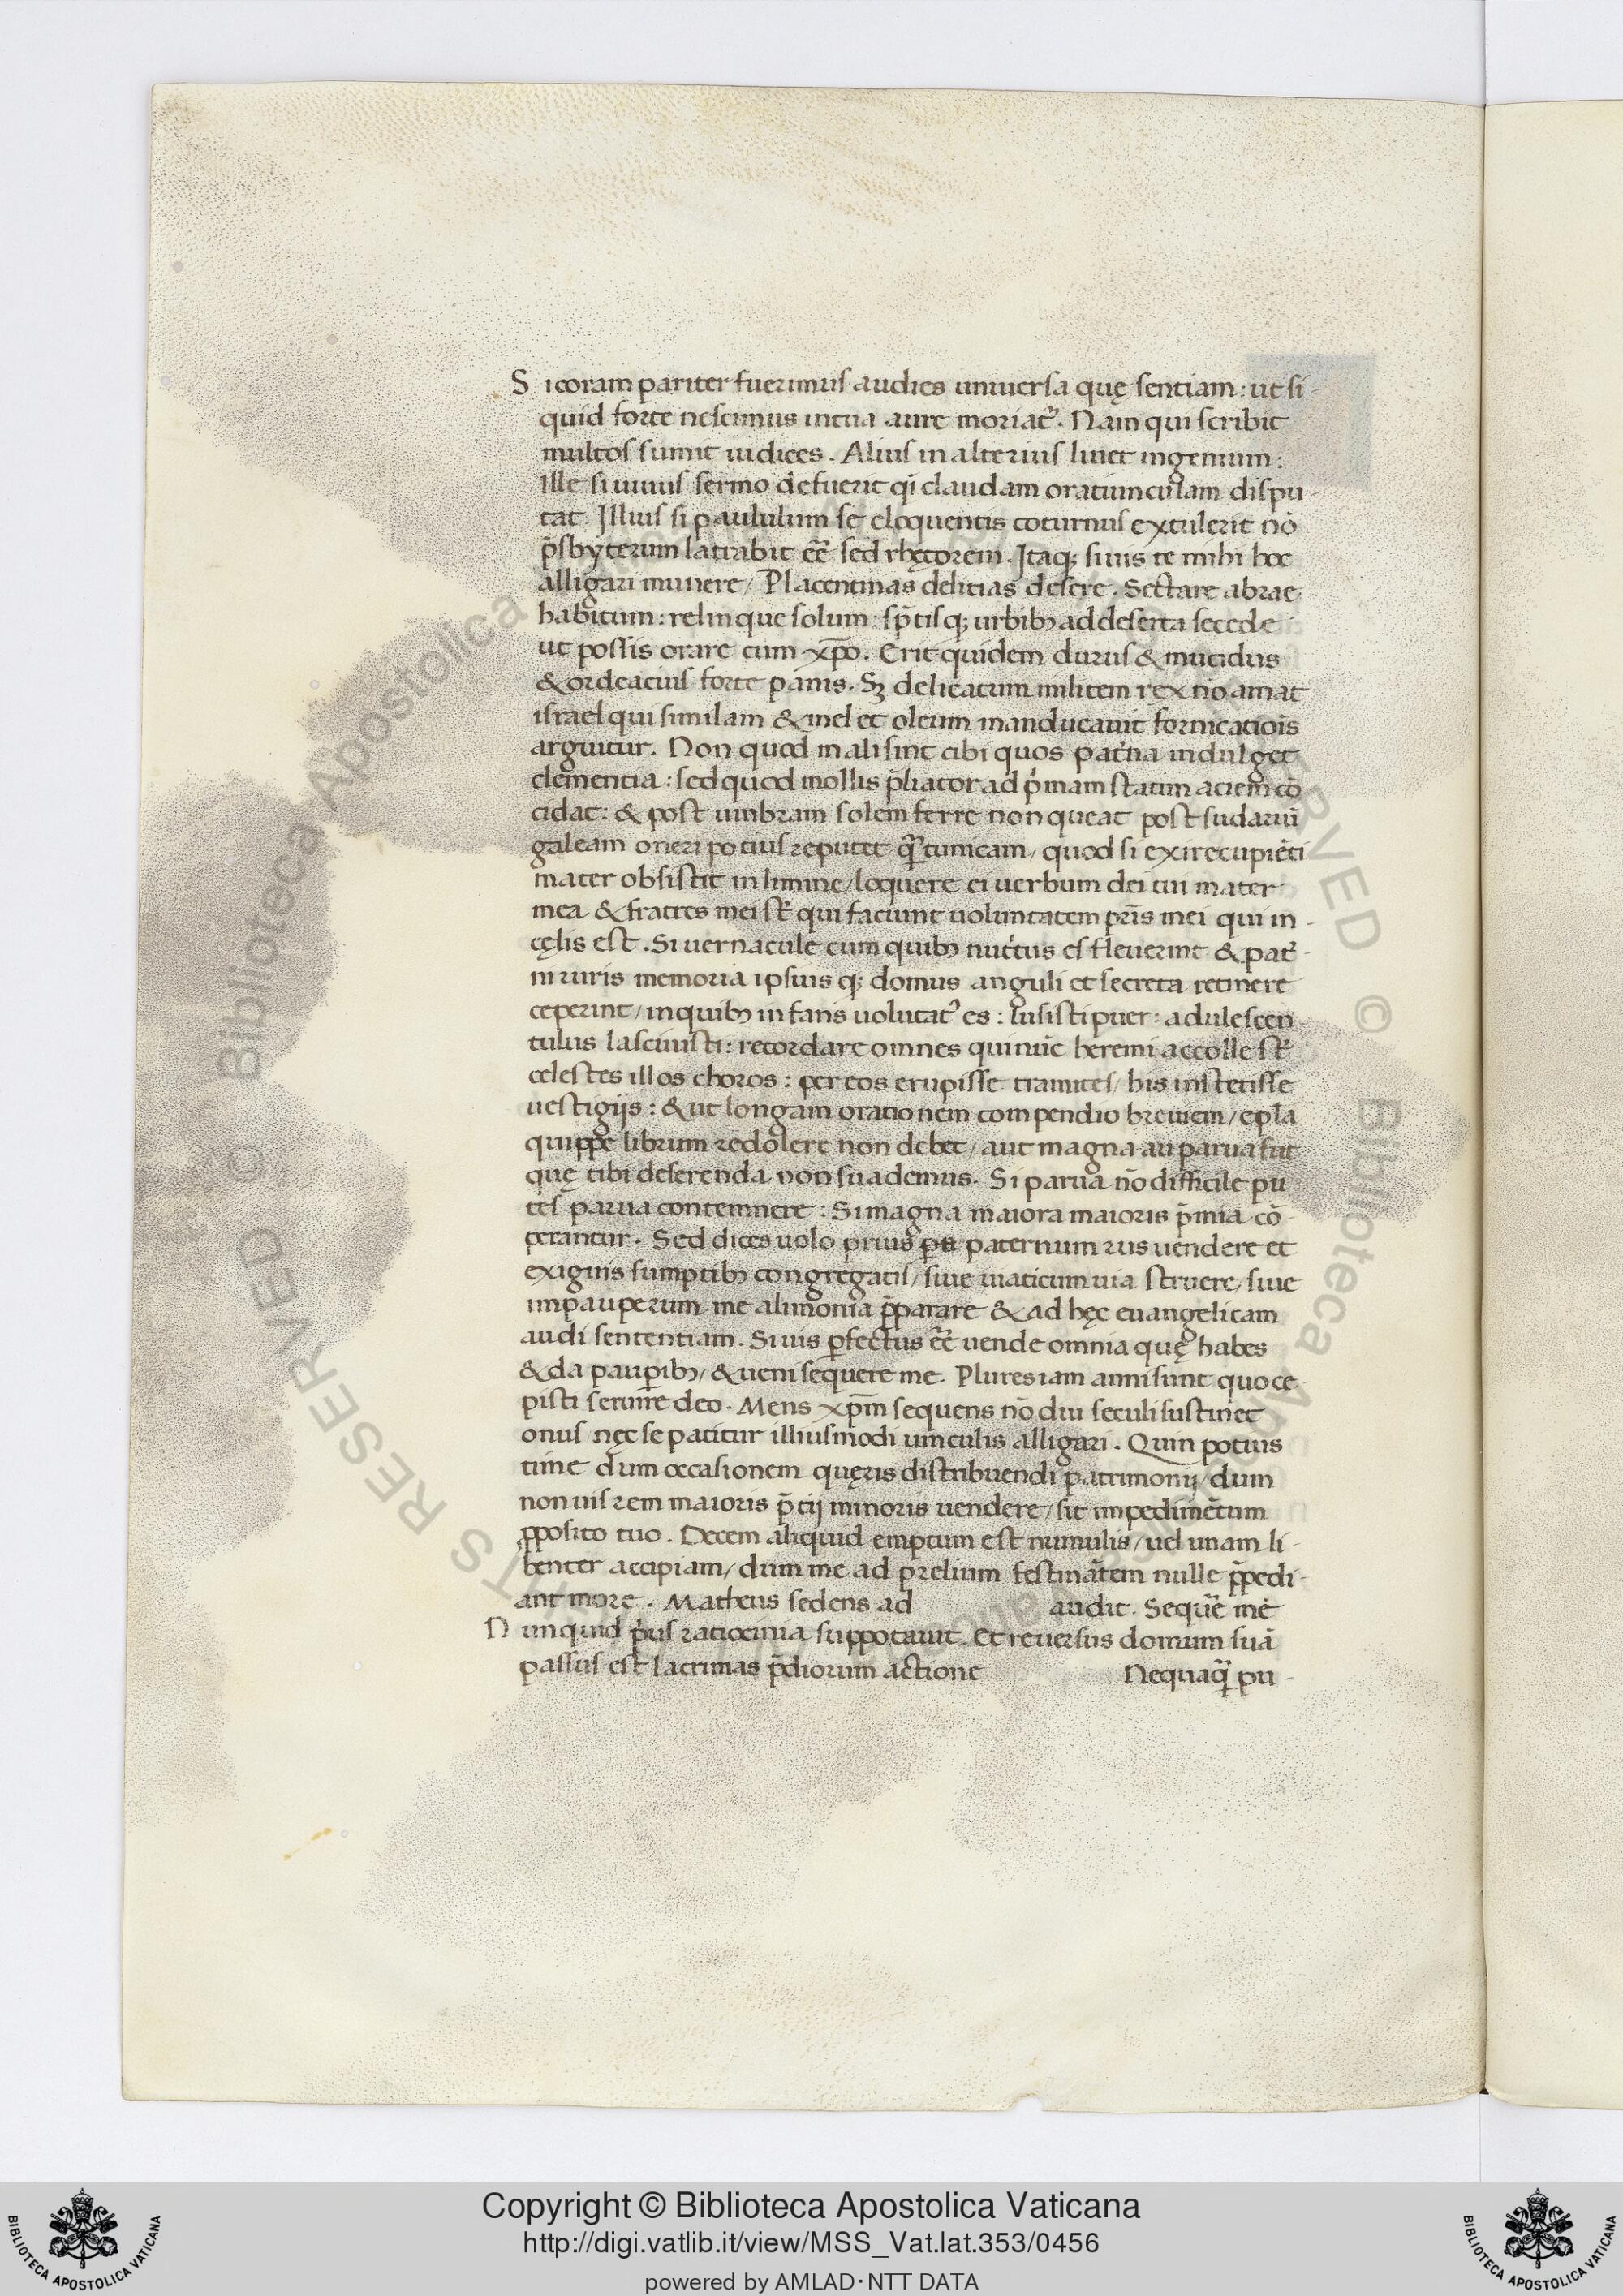 S icoram pariter fuerimus audies uniuersa quę sentiam: ut si-
quid forte nescimus intua aure moriat᷑. Nam qui scribit
multos sumit iudices. Alius in alterius liuet ingenium:
Ille si unus sermo defuerit qͥ claudam oratiunculam dispu-
tat. Illius si paululum se eloquentis coturnus extulerit nō
p̄sbyterum latrabit eē̄ sed rhętorem. Itaq; siuis te mihi hoc
alligari munere/ Placentinas delitias desere. Sectare abrae
habitum: relinque solum: sp̄tisq; urbibꝫ ad deserta secede
ut possis orare cum xp̄o. Erit quidem durus & mucidus
& ordeacius forte panis. Sꝫ delicatum militem rex nō amat
israel qui similam & mel et oleum manducauit fornicatiōis
arguitur. Non quod mali sint cibi quos pat̄na indulget
clementia: sed quod mollis p̄liator ad pͥmam statim aciem cō
cidat: & post umbram solem ferre non queat post sudariū
galeam oneri potius reputet qͣ̄ tunicam/ quod si exire cupiēti
mater obsistit in limine/ loquere ei uerbum dei tui mater
mea & fratres mei st̄ qui faciunt uoluntatem pr̄is mei qui in-
cęlis est. Si uernacule cum quibꝫ nut̄tus es fleuerint & pat᷑-
ni ruris memoria ipsius q; domus anguli et secreta retinere
ceperint/ in quibꝫ infans uolutat᷑ es: lusisti puer: adulescen
tulus lasciuisti: recordare omnes qui nūc heremi accolle st̄
celestes illos choros: per eos erupisse tramites/ his institisse
uestigijs: & ut longam orationem compendio breuiem/ epl̄a
quippe librum redolere non debet/ aut magna au parua sūt
quę tibi deserenda non suademus. Si parua nō difficile pu
tes parua contemnere: Si magna maiora maioris p̄mia cō-
perantur. Sed dices uolo prius paternum rus uendere et
exiguis sumptibꝫ congregatis/ siue uiaticum uia struere/ siue
impauperum me alimonia p̄parare & ad hęc euangelicam
audi sententiam. Siuis ꝑfectus eē̄ uende omnia quę habes
& da pauꝑibꝫ/ & ueni sequere me. Plures iam anni sunt quo ce-
pisti seruire deo. Mens xp̄m sequens nō diu seculi sustinet
onus nęc se patitur illiusmodi uinculis alligari. Quin potius
time dum occasionem quęris distribuendi patrimonij/ dum
non uis rem maioris p̄tij minoris uendere/ sit impedimētum
ꝓposito tuo. Decem aliquid emptum est numulis/ uel unam li-
benter accipiam/ dum me ad prelium festinātem nulle p̄pedi-
ant more. Matheus sedens ad audit. Seque᷑ me
N unquid pͥus ratiocinia suppotauit. Et reuersus domum suā
passus est lacrimas p̄diorum actione Nequaqͣ̄ pu-
Copyright © Biblioteca Apostolica Vaticana
http://digi.vatlib.it/view/MSS_Vat.lat.353/0456
powered by AMLAD·NTT DATA
BIBLIOTECA APOSTOLICA VATICANA
BIBLIOTECA APOSTOLICA VATICANA